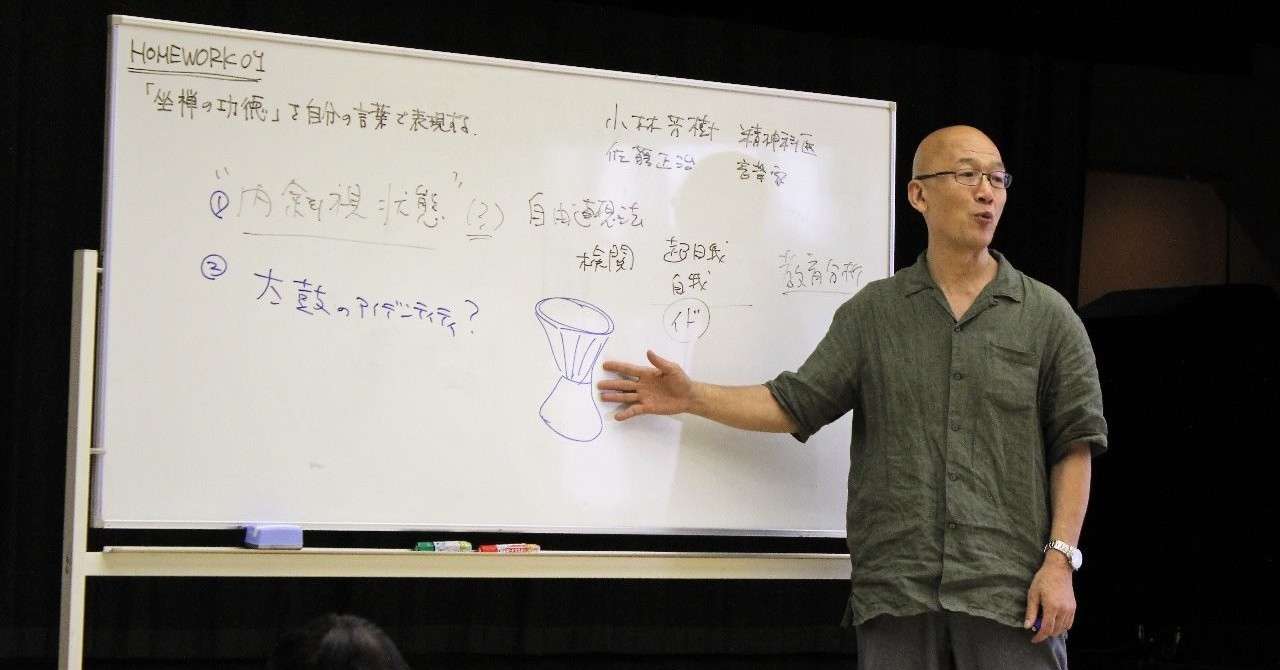 HOMEWORK 04
「坐禅の功徳」を自分の言葉で表現する.
小林芳樹 精神科医
佐藤正治 音楽家
① "内斜視状態" (?) 自由連想法
検閲 超自我
自我
イド
教育分析
② 太鼓のアイデンティティ?